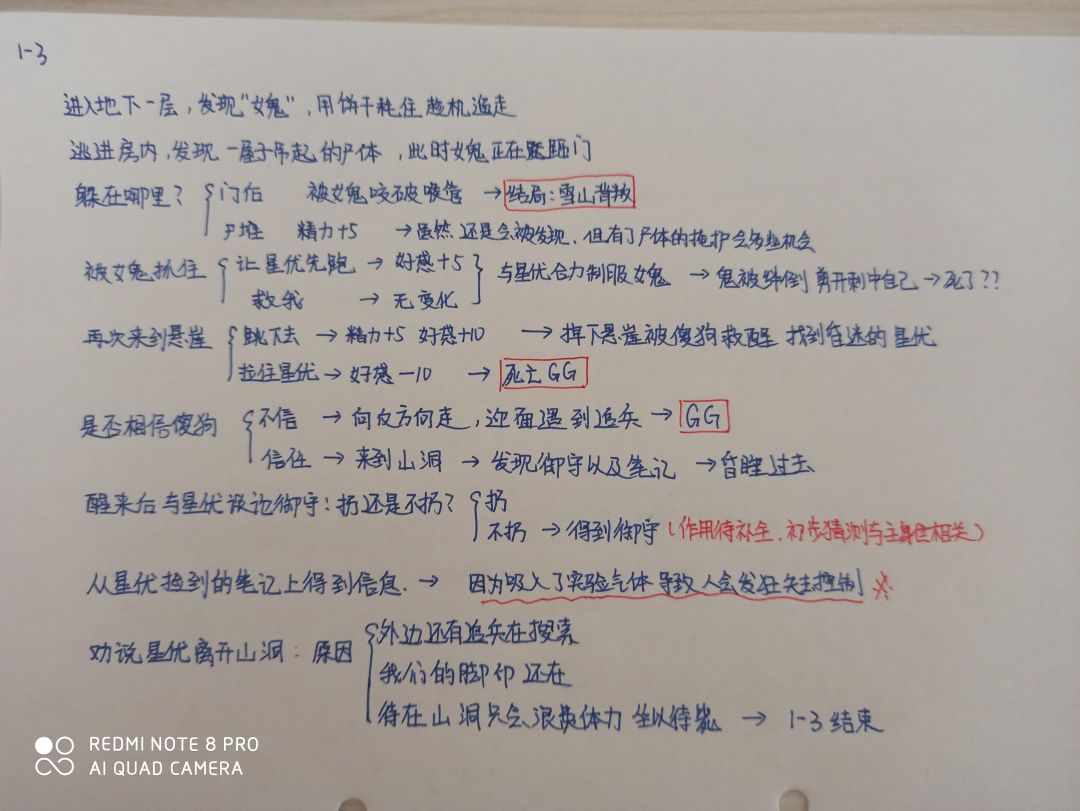 1-3
进入地下一层，发现"女鬼"，用饼干耗住趁机逃走
逃进房内，发现一屋子吊起的尸体，此时女鬼正在踹门
躲在哪里？ 门后 被女鬼咬破喉管 →结局：雪山背叛
尸堆 精力+5 →虽然还是会被发现，但有了尸体的掩护会多些机会
被女鬼抓住 让星优先跑 → 好感+5 与星优合力制服女鬼 → 鬼被绊倒 剪开刺中自己 → 死了??
救我 → 无变化
再次来到悬崖 跳下去 → 精力+5 好感+10 → 掉下悬崖被傻狗救醒 找到昏迷的星优
拉住星优 → 好感-10 → 死亡GG
是否相信傻狗 不信 → 向反方向走，迎面遇到追兵 → GG
信任 → 来到山洞 → 发现御守以及笔记 → 昏睡过去
醒来后与星优谈论御守：扔还是不扔？ 扔
不扔 → 得到御守（作用待补全，初步猜测与主身世相关）
从星优捡到的笔记上得到信息. → 因为吸入了实验气体导致人会发狂失去控制 ※
劝说星优离开山洞：原因 外边还有追兵在搜索
我们的脚印还在
待在山洞只会浪费体力 坐以待毙 → 1-3结束
REDMI NOTE 8 PRO
AI QUAD CAMERA